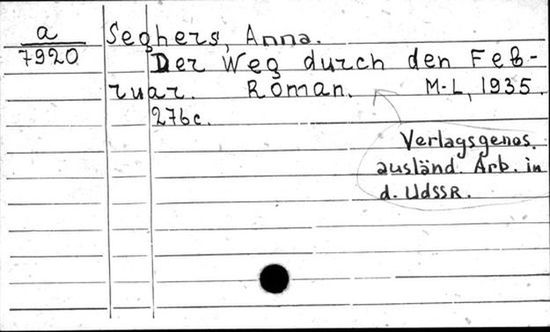 a
7920
Seghers, Anna.
Der Weg durch den Feb-
ruar. Roman. M-L, 1935.
276c.
Verlagsgenos.
ausländ. Arb. in
d. UdSSR.